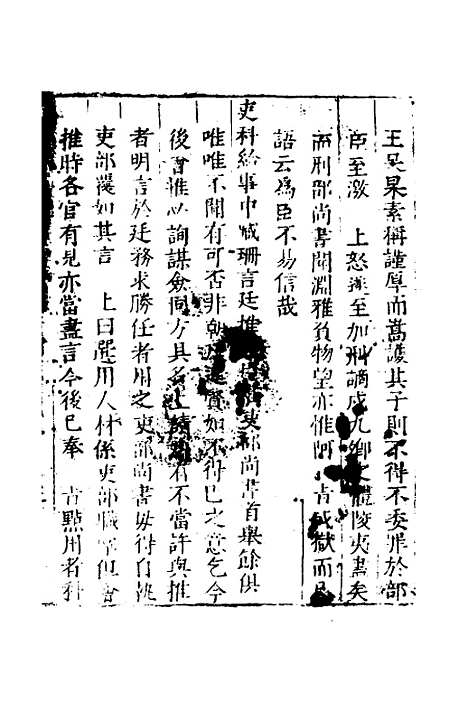 王杲杲素稱謹厚而嵩護其子則不得不委罪於部
臣至激　上怒遂至加刑謫戍九卿之體陵夷盡矣
而刑部尚書聞淵雅負物望亦惟阿旨成獄而已
語云為臣不易信哉
吏科給事中臧珊言廷推吏部尚書首舉餘俱
唯唯不聞有可否非朝廷進賢如不得已之意乞今
後會推必詢謀僉同方具名上請有不當許與推
者明言於廷務求勝任者用之吏部尚書毋得自執
吏部覆如其言　上曰選用人材係吏部職掌但會
推時各官有見亦當盡言今後已奉　旨點用者科